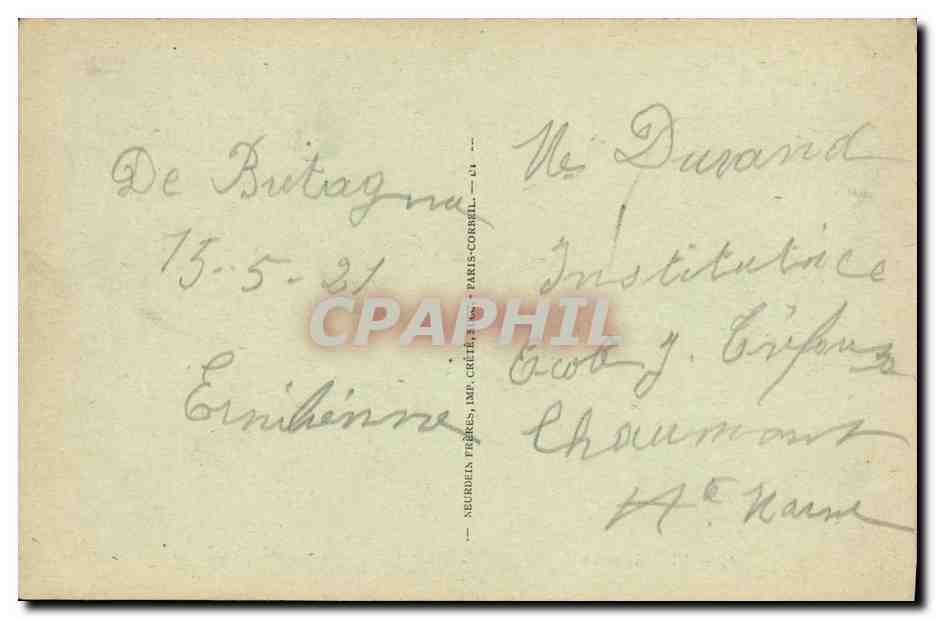 De Bretagne
15-5-21
Emilienne
NEURDEIN FRÈRES, IMP. CRÉTÉ, SUCC. - PARIS-CORBEIL. —
Durand
Institutrice
Ecole J.
Chaumont
Hte Marne
CPAPHIL